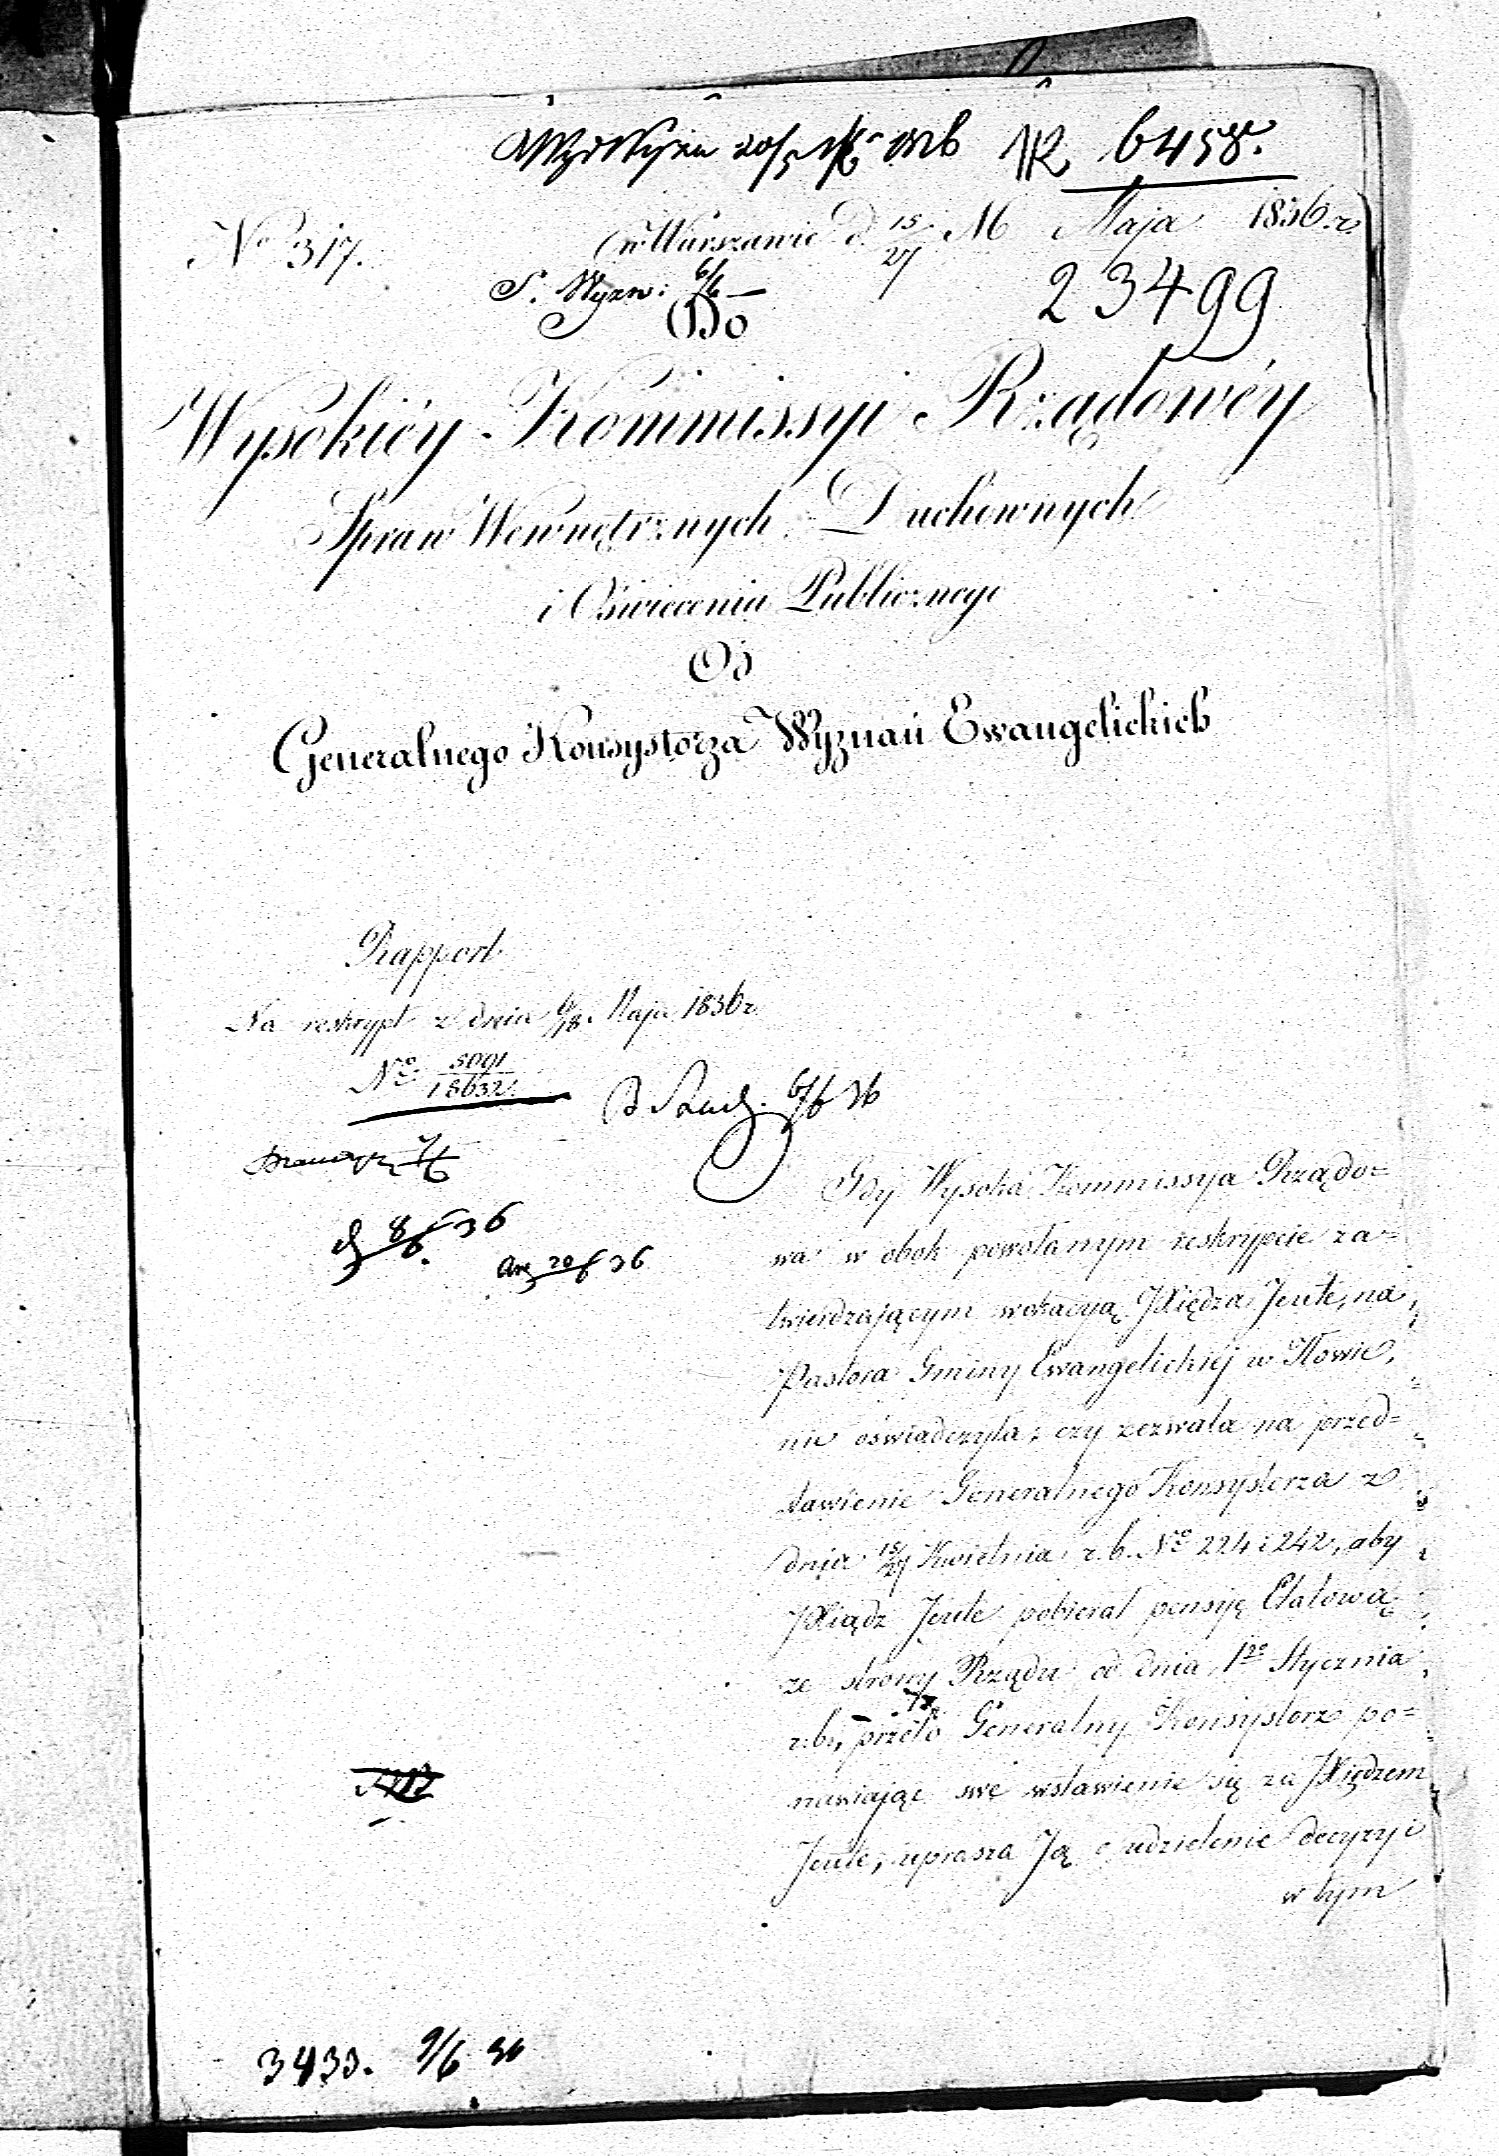 № 6458.
№ 317. w Warszawie d. 15/27 M Maja 1836 r.
S. Wyzn: 6/6 23499
Do
Wysokiéy Kommissyi Rządowéy
Spraw Wewnętrznych Duchownych
i Oświecenia Publicznego
Od
Generalnego Konsystorza Wyznań Ewangelickich
Rapport
Na reskrypt z dnia 6/18 Maja 1836 r.
No. 5091/18632.
6/6 36
8/6 36
20/6 36
Gdy Wysoka Kommissya Rządo=
wa w obok powołanym reskrypcie za=
twierdzającym wokacyą JXiędza Jeute, na
Pastora Gminy Ewangelickiéj w Iłowie,
nie oświadczyła, czy zezwala na przed=
stawienie Generalnego Konsystorza z
dnia 15/27 Kwietnia r. b. No 224 i 242, aby
JXiądz Jeute pobierał pensyę Etatową
ze strony Rządu od dnia 1go Stycznia
r. b., przeto Generalny Konsystorz po=
nawiając swe wstawienie się za JXiędzem
Jeute, uprasza Ją o udzielenie decyzyi
w tym
3433. 9/6 36